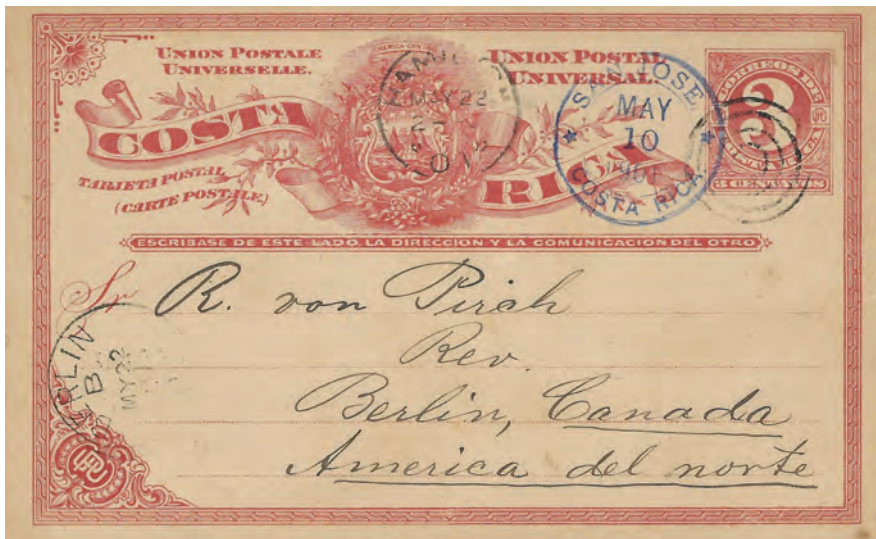 UNION POSTALE
UNIVERSELLE.
UNION POSTAL
UNIVERSAL.
COSTA
RICA
TARJETA POSTAL
(CARTE POSTALE)
CORREOS DE
3
3 CENTAVOS
SAN JOSE
MAY
10
COSTA RICA
MAY 22
01
ESCRIBASE DE ESTE LADO LA DIRECCION Y LA COMUNICACION DEL OTRO
Sr R. von Pirch
Rev.
Berlin, Canada
America del norte
BERLIN
MY 22
UPU